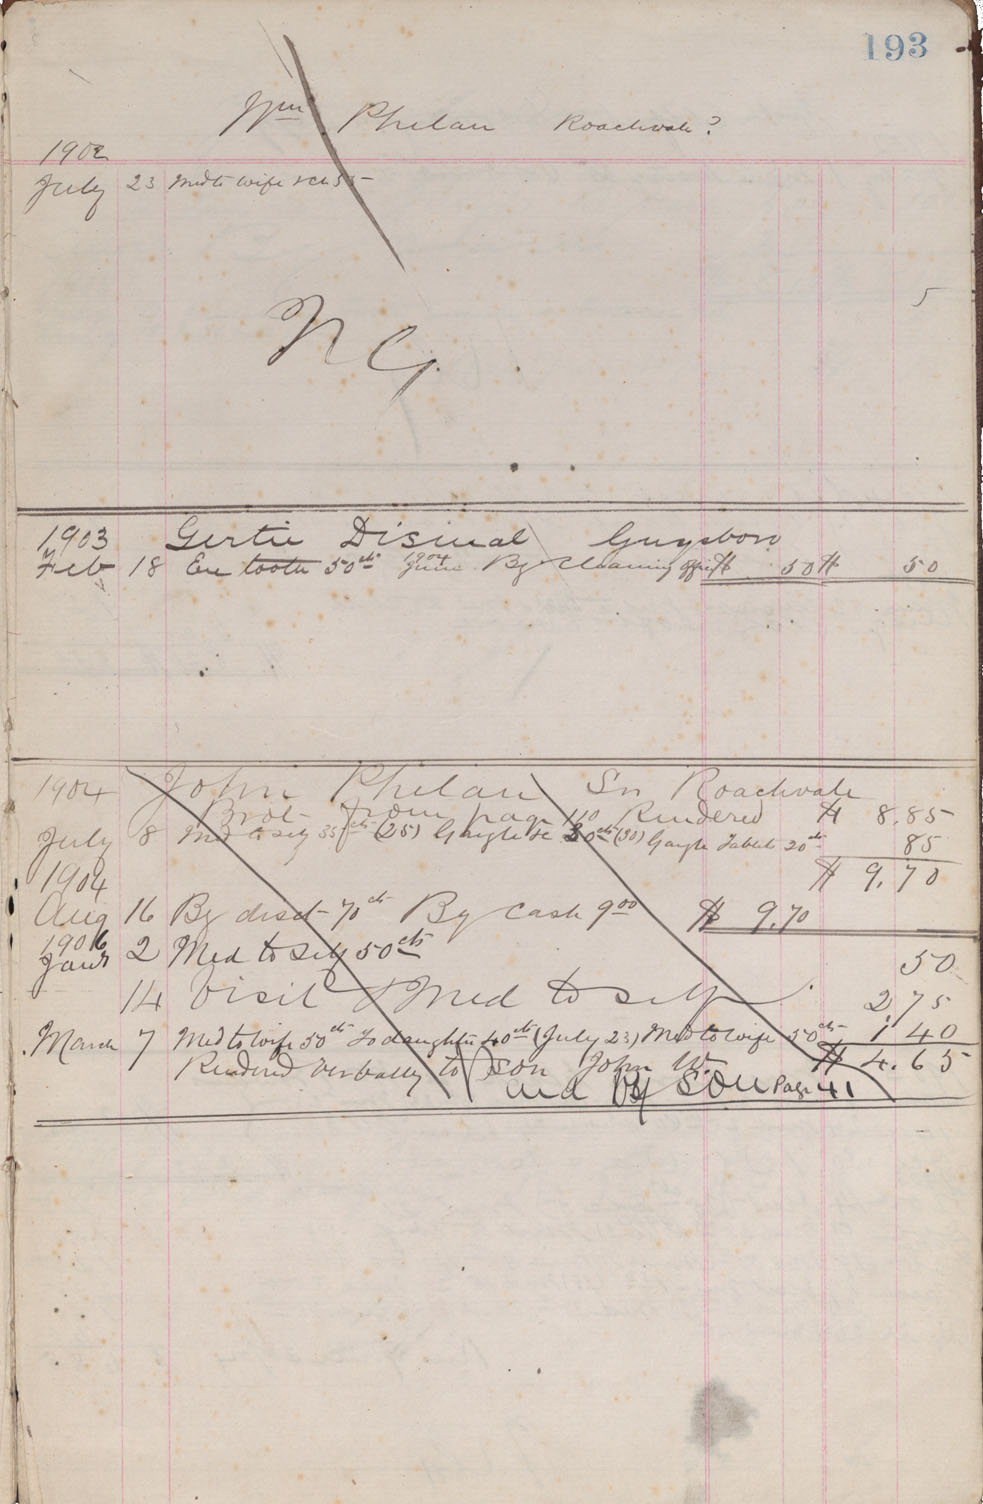 193
Wm Phelan Roachvale?
1902
July 23 Med to wife
5
N G.
1903 Gertie Disimal Guysboro
Feb 18 Ex tooth 50cts 1904 June By Cleaning office $ 50 $ 50
1904 John Phelan Sr Roachvale
Brot from page 110 Rendered $ 8.85
July 8 Med to self 35cts (25) Gargle &c 30cts (30) Gargle Tablets 20cts 85
1904 $ 9.70
Aug 16 By disct 70cts By cash 9 00 $ 9.70
1906
Jany 2 Med to self 50cts 50
14 Visit & Med to self 2.75
March 7 Med to wife 50cts To daughter 40cts (July 23) Med to wife 50cts 1 40
Rendered verbally to son John W. $ 4.65
and By Son Page 41